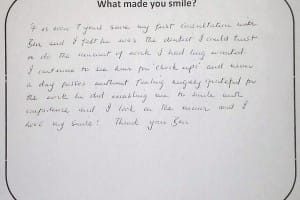 What made you smile?
It is over 7 years since my first consultation with
Ben and I felt he was the dentist I could trust
to do the amount of work I had long wanted.
I continue to see him for 'check ups' and never
a day passes without feeling hugely grateful for
the work he did enabling me to smile with
confidence and I look in the mirror and I
love my smile! Thank you Ben